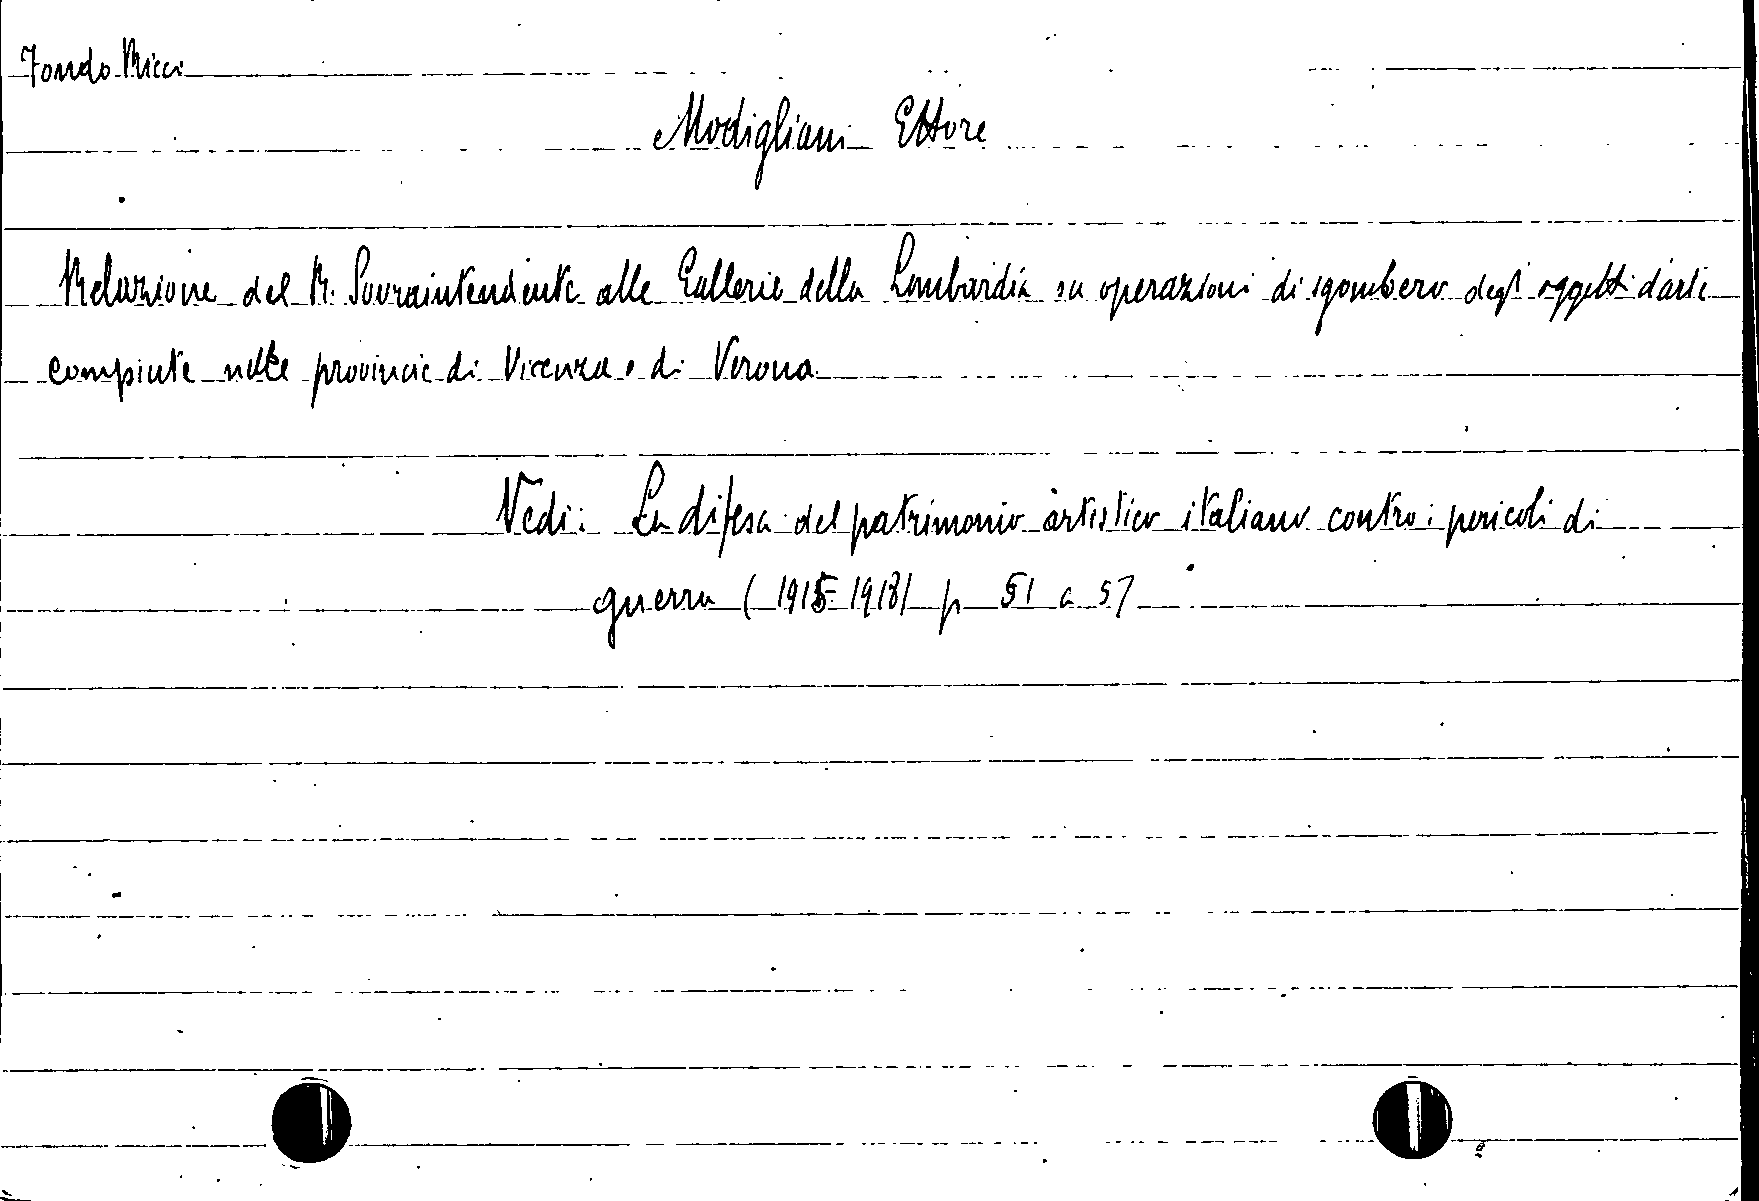 Fondo Ricci
Modigliani Ettore
Relazione del R. Sovraintendente alle Gallerie della Lombardia su operazioni di sgombero degli oggetti d'arte
compiute nelle provincie di Vicenza e di Verona
Vedi: La difesa del patrimonio artistico italiano contro i pericoli di
guerra (1915-1918) p 51 a 57